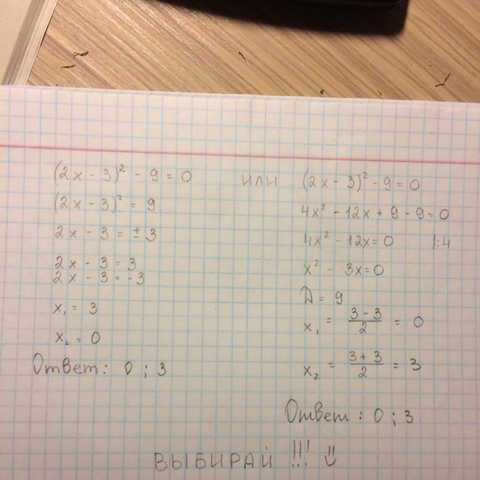 (2x - 3)² - 9 = 0
(2x - 3)² = 9
2x - 3 = ± 3
2x - 3 = 3
2x - 3 = -3
x₁ = 3
x₂ = 0
Ответ: 0 ; 3
или
(2x - 3)² - 9 = 0
4x² - 12x + 9 - 9 = 0
4x² - 12x = 0 |:4
x² - 3x = 0
D = 9
x₁ = (3 - 3)/2 = 0
x₂ = (3 + 3)/2 = 3
Ответ: 0 ; 3
ВЫБИРАЙ !!!